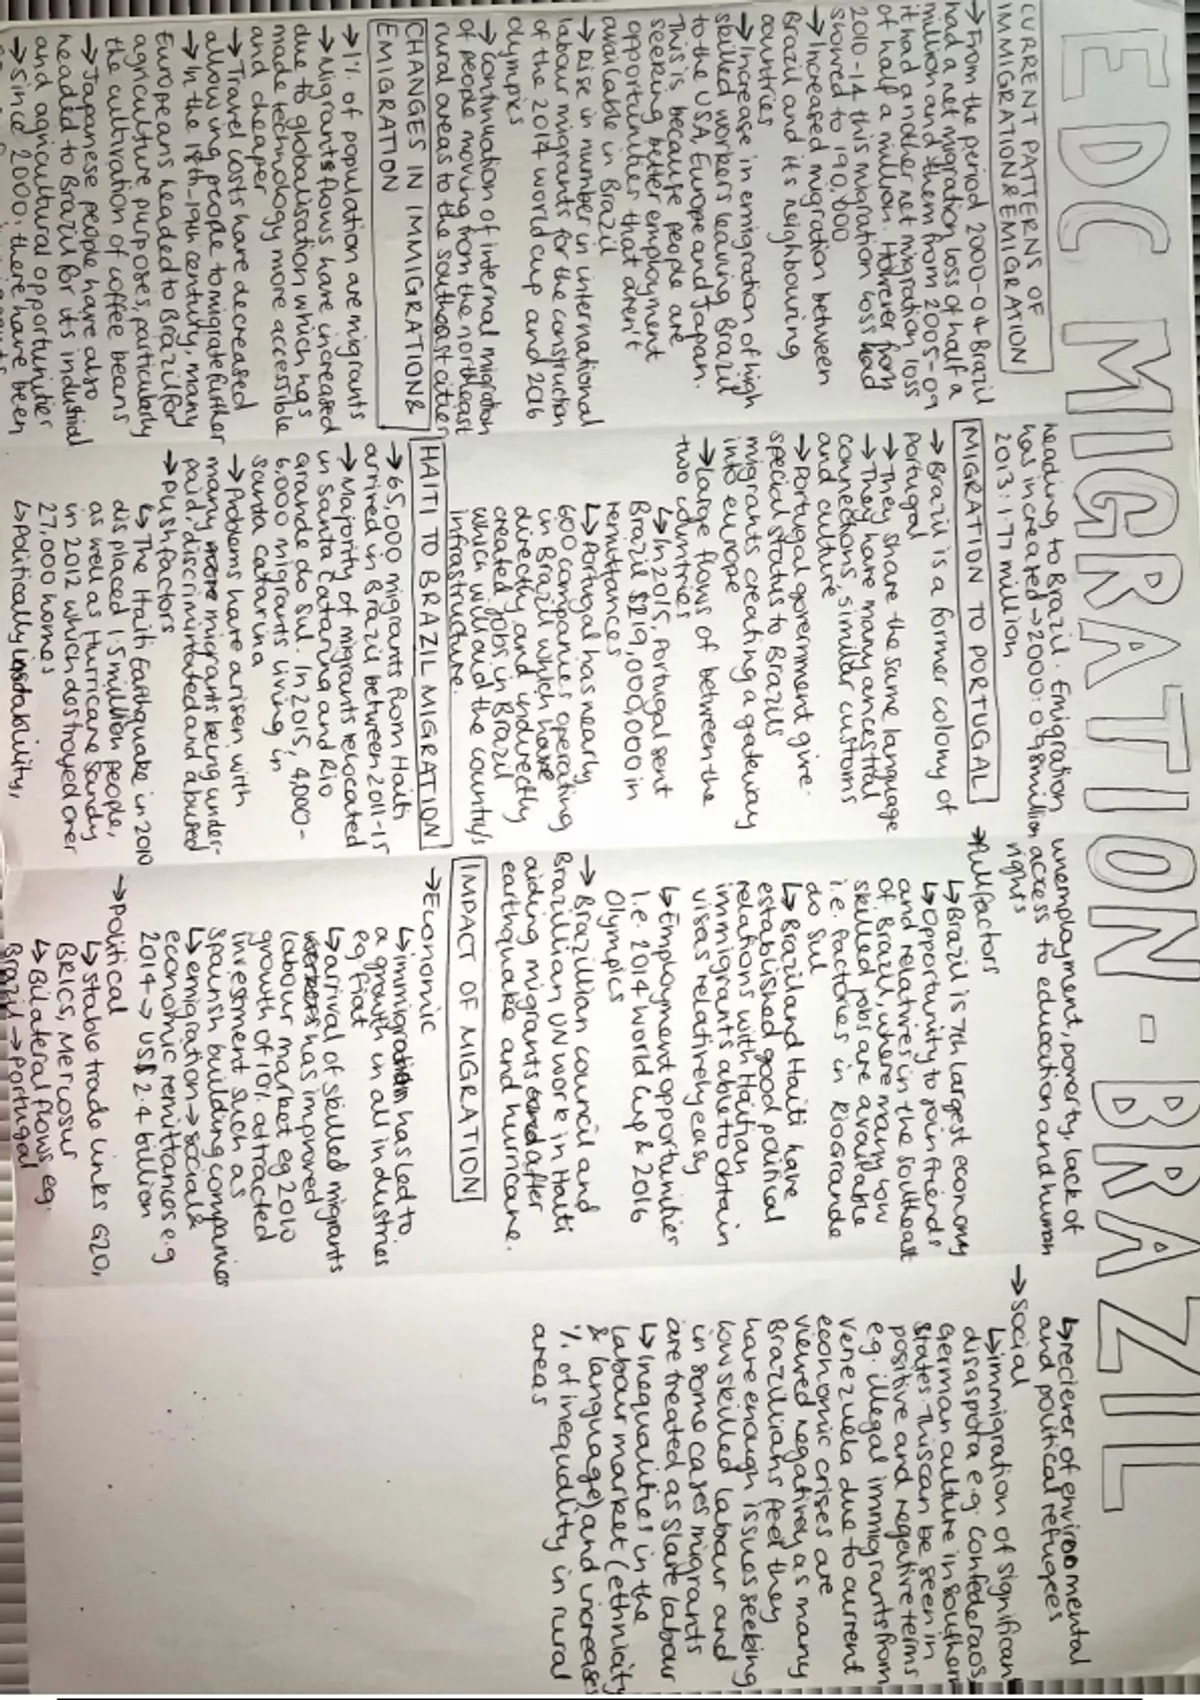 EDC MIGRATION - BRAZIL
CURRENT PATTERNS OF
IMMIGRATION & EMIGRATION
→ From the period 2000-04 Brazil
had a net migration loss of half a
million and them from 2005-09
it had another net migration loss
of half a million. However from
2010-14 this migration loss had
slowed to 190,000
→ Increased migration between
Brazil and it's neighbouring
countries
→ Increase in emigration of high
skilled workers leaving Brazil
to the USA, Europe and Japan.
This is because people are
seeking better employment
opportunities that aren't
available in Brazil
→ Rise in number in international
labour migrants for the construction
of the 2014 world cup and 2016
olympics
→ Continuation of internal migration
of people moving from the northeast
rural areas to the southeast cities
CHANGES IN IMMIGRATION &
EMIGRATION
→ 1% of population are migrants
→ Migrants flows have increased
due to globalisation which has
made technology more accessible
and cheaper
→ Travel costs have decreased
allowing people to migrate further
→ In the 18th-19th century, many
Europeans headed to Brazil for
agriculture purposes, particularly
the cultivation of coffee beans
→ Japanese people have also
headed to Brazil for its industrial
and agricultural opportunities
→ Since 2000, there have been
heading to Brazil. Emigration
has increased → 2000: 0.98 million
2013: 1.77 million
MIGRATION TO PORTUGAL
→ Brazil is a former colony of
Portugal
→ They share the same language
→ They have many ancestral
connections, similar customs
and culture
→ Portugal government give
special status to Brazils
migrants creating a gateway
into europe
→ Large flows of between the
two countries
↳ In 2015, Portugal sent
Brazil $219,000,000 in
remittances
↳ Portugal has nearly
600 companies operating
in Brazil which have
directly and indirectly
created jobs in Brazil
which will aid the country's
infrastructure.
HAITI TO BRAZIL MIGRATION
→ 65,000 migrants from Haiti
arrived in Brazil between 2011-15
→ Majority of migrants relocated
in Santa Catarina and Rio
Grande do Sul. In 2015, 4,000-
6,000 migrants living in
Santa Catarina
→ Problems have arisen with
many migrants being under-
paid, discriminated and abused
→ Push factors
↳ The Haiti Earthquake in 2010
displaced 1.5 million people,
as well as Hurricane Sandy
in 2012 which destroyed over
27,000 homes
↳ Politically instability,
unemployment, poverty, lack of
access to education and human
rights
→ Pull factors
↳ Brazil is 7th largest economy
↳ Opportunity to join friends
and relatives in the southeast
of Brazil, where many low
skilled jobs are available
i.e. factories in Rio Grande
do Sul
↳ Brazil and Haiti have
established good political
relations with Haitian
immigrants able to obtain
visas relatively easy
↳ Employment opportunities
i.e. 2014 World Cup & 2016
Olympics
→ Brazillian council and
Brazillian UN work in Haiti
aiding migrants after
earthquake and hurricane.
IMPACT OF MIGRATION
→ Economic
↳ immigration has led to
a growth in all industries
eg fiat
↳ arrival of skilled migrants
has improved
labour market eg 2010
growth of 10% attracted
investment such as
Spanish building companies
↳ emigration → social &
economic remittances e.g
2014 → US$ 2.4 billion
→ Political
↳ stable trade links G20,
BRICS, Mercosur
↳ Bilateral flows eg.
Brazil → Portugal
↳ reciever of environmental
and political refugees
→ Social
↳ immigration of significant
disaspota e.g. Confederaos,
German culture in southern
states. This can be seen in
positive and negative terms
e.g. illegal immigrants from
Venezuela due to current
economic crises are
viewed negatively as many
Brazilians feel they
have enough issues seeking
low skilled labour and
in some cases migrants
are treated as slave labour
↳ Inequalities in the
labour market (ethnicity
& language) and increases
% of inequality in rural
areas